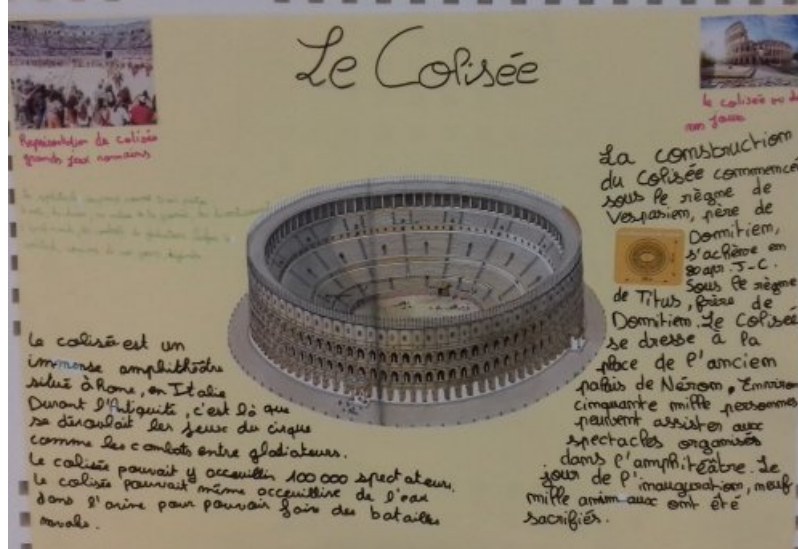 Le Colisée
Représentation du colisée
grands jeux romains
le colisée vu de
nos jours
La construction
du Colisée commence
sous le règne de
Vespasien, père de
Domitien,
s'achève en
80 apr. J-C.
Sous le règne
de Titus, frère de
Domitien. Le Colisée
se dresse à la
place de l'ancien
palais de Néron. Environ
cinquante mille personnes
peuvent assister aux
spectacles organisés
dans l'amphitéâtre. Le
jour de l'inauguration, neuf
mille animaux ont été
sacrifiés.
Le colisé est un
immense amphithéâtre
situé à Rome, en Italie
Durant l'Antiquité, c'est là que
se déroulait les jeux du cirque
comme les combats entre gladiateurs.
Le colisée pouvait y acceuillir 100 000 spectateurs.
Le colisée pouvait même acceuillire de l'eau
dans l'arène pour pouvoir faire des batailles
navale.